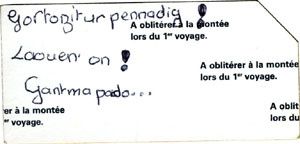 Gortozitur pennadig !
A oblitérer à la montée
lors du 1er voyage.
Laouen on !
A oblitérer à la montée
lors du 1er voyage.
Gant ma pado...
er à la montée
er voyage.
A oblit
lors du